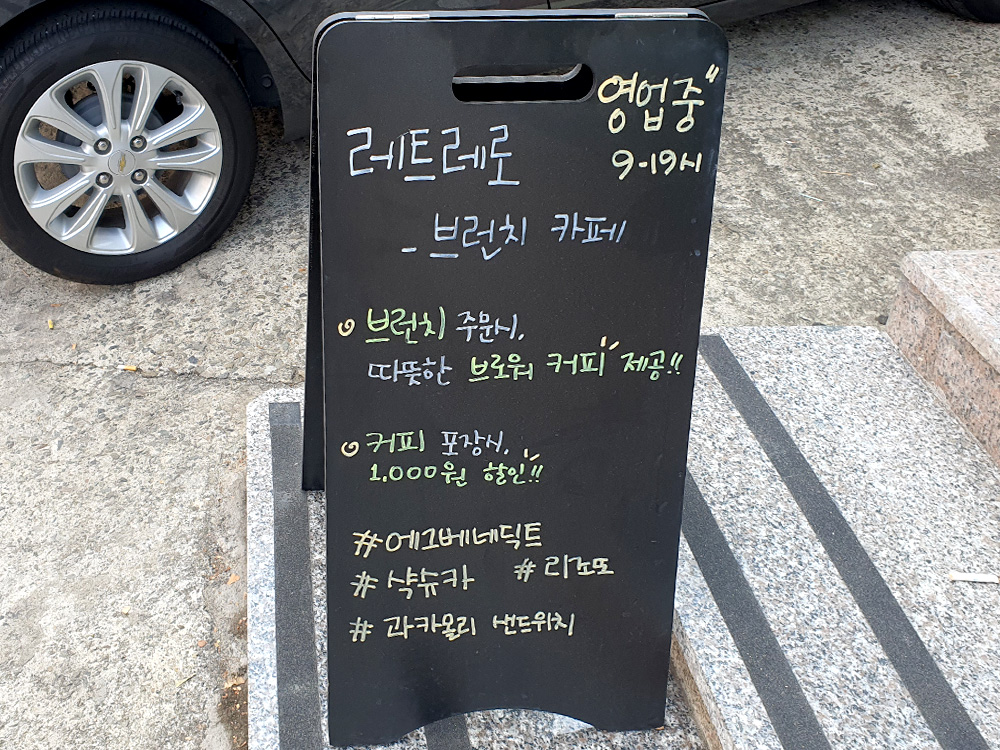 영업중"
9-19시
레트레로
- 브런치 카페
브런치 주문시,
따뜻한 브로워 커피 제공!!
커피 포장시,
1.000원 할인!!
#에그베네딕트
# 샥슈카 # 리조또
# 과카몰리 샌드위치